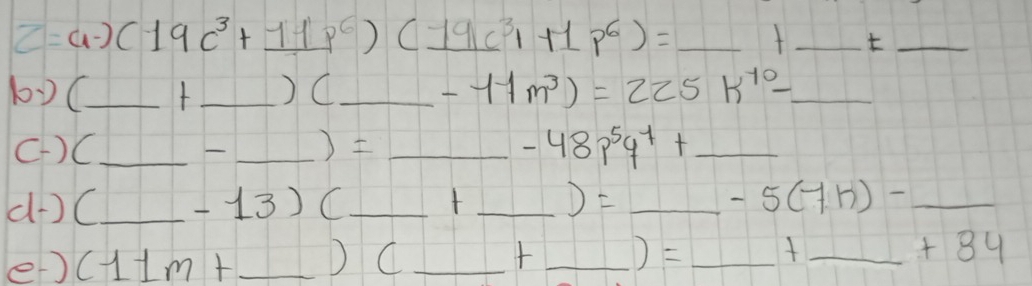 2=a-) (19c³ + 11p⁶) (19c³ + 11p⁶) = ___ + ___ + ___
b-) (___ + ___) (___ - 11m³) = 225 k¹⁰ - ___
c-) (___ - ___) = ___ - 48p⁵q⁷ + ___
d-) (___ - 13) (___ + ___) = ___ - 5(7h) - ___
e-) (11m + ___) (___ + ___) = ___ + ___ + 84